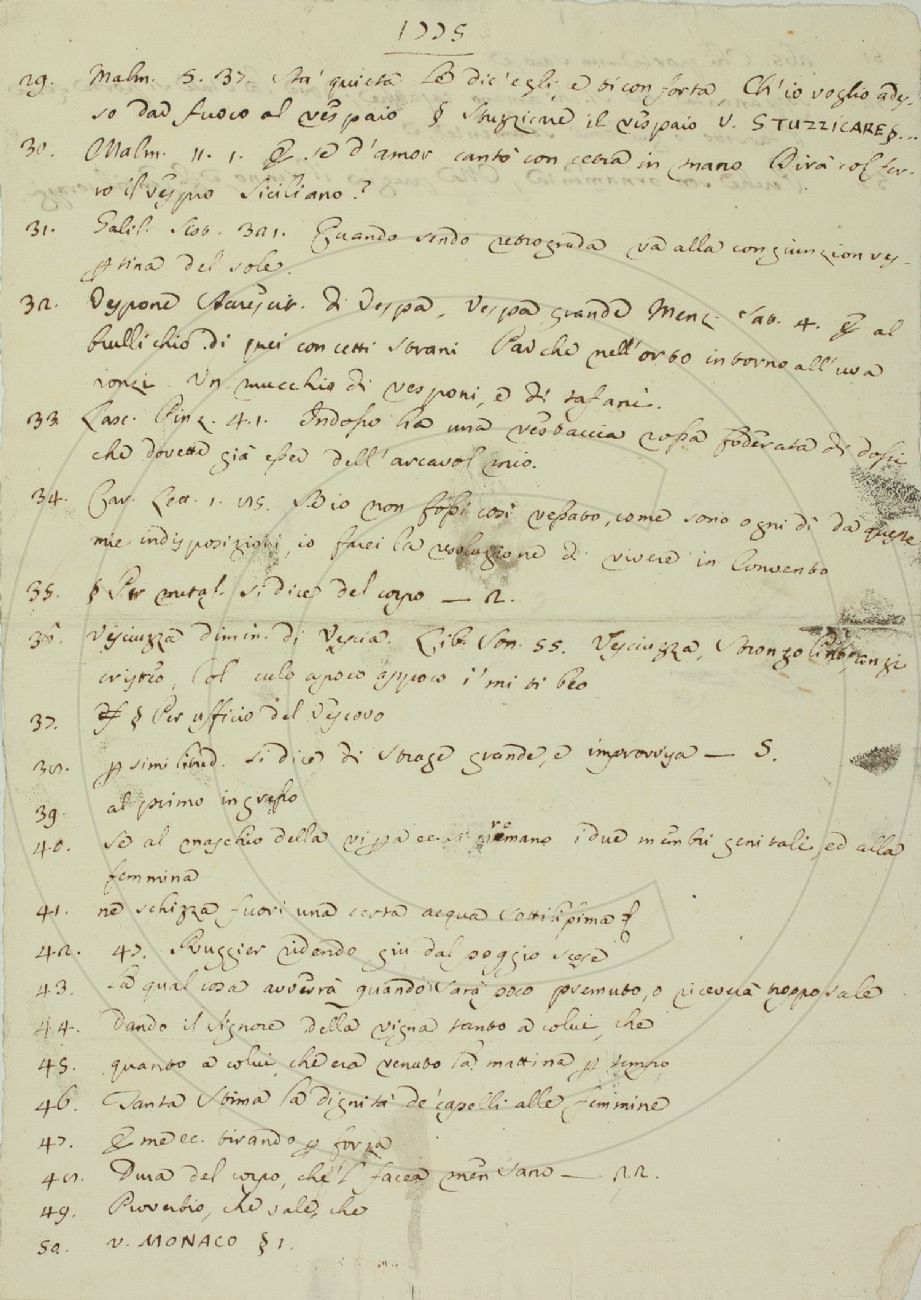 1775
29. Malm. 5. 37. Sta' quieta le dic' egli, e ti conforta, Ch' io voglio ades-
so dar fuoco al vespaio § Stuzzicare il vespaio V. STUZZICARE §...
30. Malm. 11. 1. E se d'amor cantò con cetra in mano Dirà col fer-
ro il vespro Siciliano?
31. Galil. 381. Quando sendo retrograda va alla congiunzion ves-
pertina del sole.
32. Vespone Accrescit. di Vespa, Vespa grande Menz. Sat. 4. E al
bullichio di quei concetti strani Par che nell'orto intorno all'uva
ronzi Un mucchio di vesponi, e di tafani.
33 Lasc. Pinz. 4. 1. Indosso ha una vestaccia rossa foderata di dossi
che dovette già esser dell'arcavol mio.
34. Car. Lett. 1. 18. Se io non fossi così vessato, come sono ogni dì da queste
mie indisposizioni, io farei la resoluzione di vivere in Convento
35. § Per metaf. si dice del corpo — 2.
36. Vesciuzza dimin. di Vescia. Lib. Son. 55. Vesciuzza, Stronzolino, anzi
cristeo, Col culo a poco a poco i' mi ti beo
37. § Per ufficio del Vescovo
38. p similitud. si dice di strage grande, e improvvisa — 5.
39. al primo ingresso
40. Se al maschio della vespa ec. si premano i due membri genitali, ed alla
femmina
41. ne schizza fuori una certa acqua sottilissima
42. 47. Ruggier ridendo giù dal poggio scese
43. La qual cosa avverrà quando sarà poco premuto, o riceverà troppo sale
44. Dando il Signore della vigna tanto a colui, che
45. quanto a colui, che era venuto la mattina p tempo
46. Tanta stima la dignità de' capelli alle femmine
47. E me ec. tirando p forza
48. Dura del corpo, che 'l facea men sano — 22.
49. Proverbio, che vale, che
50. v. MONACO § 1.